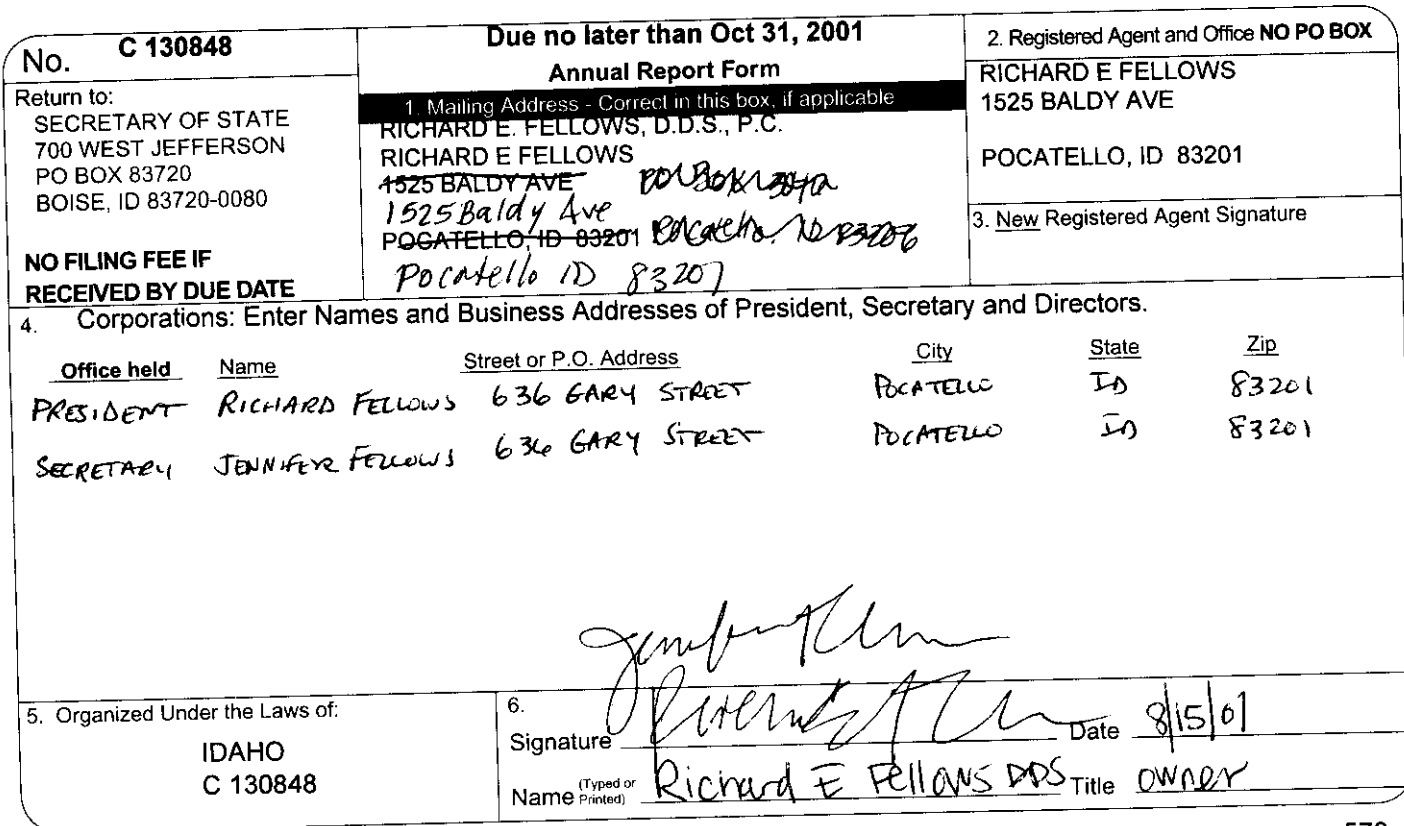 No. C 130848
Return to:
SECRETARY OF STATE
700 WEST JEFFERSON
PO BOX 83720
BOISE, ID 83720-0080
NO FILING FEE IF
RECEIVED BY DUE DATE
Due no later than Oct 31, 2001
Annual Report Form
1. Mailing Address - Correct in this box, if applicable
RICHARD E. FELLOWS, D.D.S., P.C.
RICHARD E FELLOWS
1525 BALDY AVE PO Box
1525 Baldy Ave
POCATELLO, ID 83201 Pocatello, ID 83206
Pocatello ID 83207
2. Registered Agent and Office NO PO BOX
RICHARD E FELLOWS
1525 BALDY AVE
POCATELLO, ID 83201
3. New Registered Agent Signature
4. Corporations: Enter Names and Business Addresses of President, Secretary and Directors.
Office held Name Street or P.O. Address City State Zip
PRESIDENT RICHARD FELLOWS 636 GARY STREET POCATELLO ID 83201
SECRETARY JENNIFER FELLOWS 636 GARY STREET POCATELLO ID 83201
5. Organized Under the Laws of:
IDAHO
C 130848
6.
Signature Date 8/15/01
Name (Typed or Printed) Richard E Fellows DDS Title owner